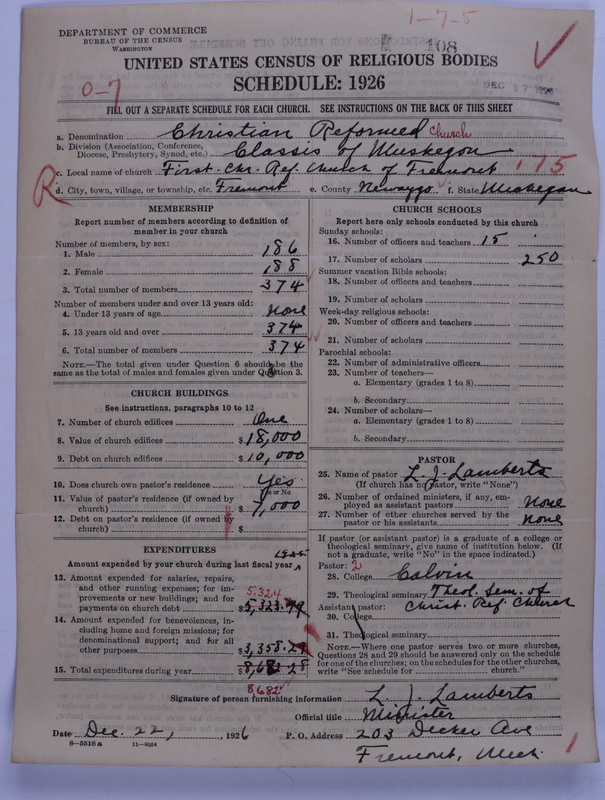 1-7-5
108
DEPARTMENT OF COMMERCE
BUREAU OF THE CENSUS
WASHINGTON
UNITED STATES CENSUS OF RELIGIOUS BODIES
SCHEDULE: 1926
DEC 27 1926
0-7
FILL OUT A SEPARATE SCHEDULE FOR EACH CHURCH. SEE INSTRUCTIONS ON THE BACK OF THIS SHEET
a. Denomination Christian Reformed Church
b. Division (Association, Conference, Diocese, Presbytery, Synod, etc.) Classis of Muskegon
c. Local name of church First Chr. Ref. Church of Fremont 175
R
d. City, town, village, or township, etc. Fremont e. County Newaygo f. State Muskegan
MEMBERSHIP
Report number of members according to definition of
member in your church
Number of members, by sex:
1. Male 186
2. Female 188
3. Total number of members 374
Number of members under and over 13 years old:
4. Under 13 years of age None
5. 13 years old and over 374
6. Total number of members 374
NOTE.—The total given under Question 6 should be the
same as the total of males and females given under Question 3.
CHURCH BUILDINGS
See instructions, paragraphs 10 to 12
7. Number of church edifices One
8. Value of church edifices $18,000
9. Debt on church edifices $10,000
10. Does church own pastor's residence Yes
Yes or No
11. Value of pastor's residence (if owned by
church) $7,000
12. Debt on pastor's residence (if owned by
church) $
EXPENDITURES
Amount expended by your church during last fiscal year
13. Amount expended for salaries, repairs,
and other running expenses; for im-
provements or new buildings; and for
payments on church debt $5,323.99
5,324
14. Amount expended for benevolences, in-
cluding home and foreign missions; for
denominational support; and for all
other purposes $3,358.29
15. Total expenditures during year $8,682 28
8,682
CHURCH SCHOOLS
Report here only schools conducted by this church
Sunday schools:
16. Number of officers and teachers 15
17. Number of scholars 250
Summer vacation Bible schools:
18. Number of officers and teachers
19. Number of scholars
Week-day religious schools:
20. Number of officers and teachers
21. Number of scholars
Parochial schools:
22. Number of administrative officers
23. Number of teachers—
a. Elementary (grades 1 to 8)
b. Secondary
24. Number of scholars—
a. Elementary (grades 1 to 8)
b. Secondary
PASTOR
25. Name of pastor L. J. Lamberts
(If church has no pastor, write "None")
26. Number of ordained ministers, if any, em-
ployed as assistant pastors None
27. Number of other churches served by the
pastor or his assistants None
If pastor (or assistant pastor) is a graduate of a college or
theological seminary, give name of institution below. (If
not a graduate, write "No" in the space indicated.)
Pastor: 2
28. College Calvin
29. Theological seminary Theol. Sem. of
Christ. Ref. Church
Assistant pastor:
30. College
31. Theological seminary
NOTE.—Where one pastor serves two or more churches,
Questions 28 and 29 should be answered only on the schedule
for one of the churches; on the schedules for the other churches,
write "See schedule for church."
Signature of person furnishing information L. J. Lamberts
Official title Minister
Date Dec. 22, 1926 P. O. Address 203 Decker Ave
Fremont, Mich.
8-5518 a 11-9054